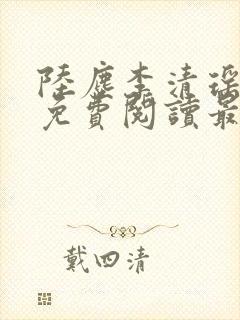 陸塵李清瑤
免費閱讀最
戴四清